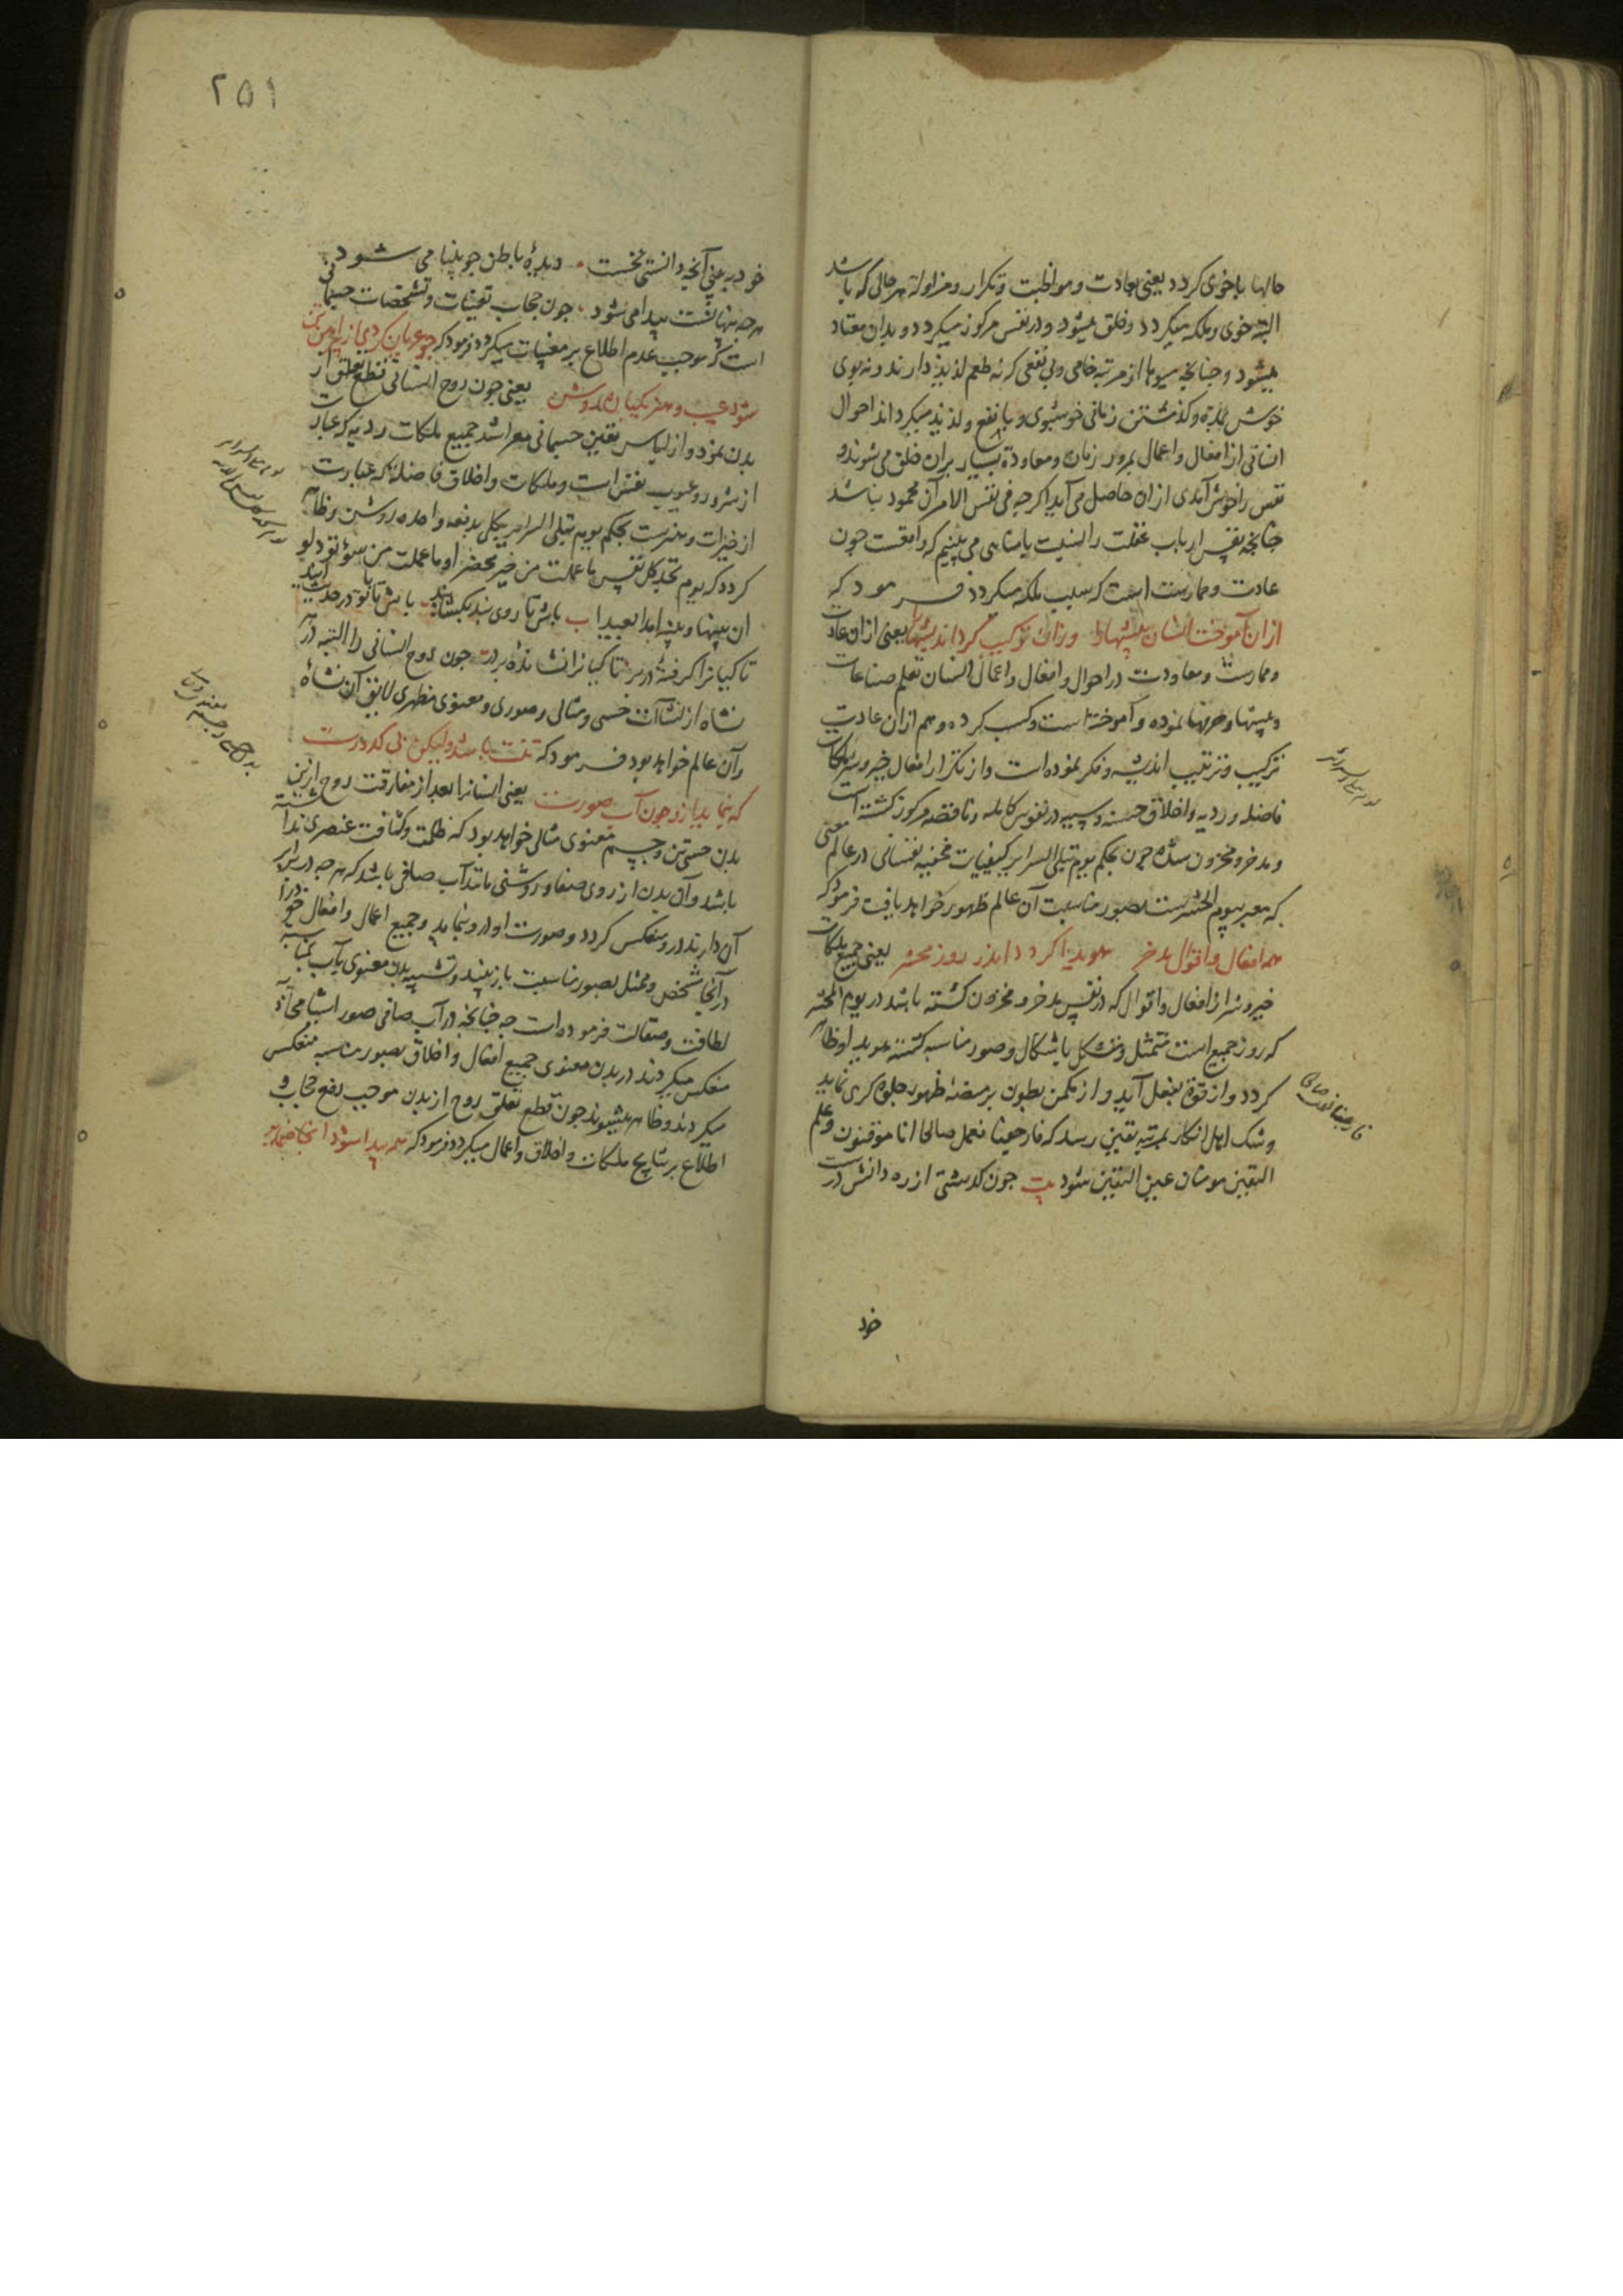 حالها با خوی کردد یعنی بعادت و مواظبت و تکرار و مزاولة هر حالی که باشد
البته خوی و ملکه میکردد و خلق میشود و در نفس مرکوز میکردد و بدان معتاد
میشود و جنانجه میوها از مرتبه خامی و بی نفعی که نه طعم لذیذ دارند و نه بوی
خوش بمدة و کذشتن زمانی خوشبوی و با نفع و لذیذ میکردند احوال
انسانی از افعال و اعمال بمرور زمان و معاودة بسیار بران خلق می شوند و
نفس را خوش آمدی ازان حاصل می آید اکرجه فی نفس الامر آن محمود نباشد
جنانجه نفس ارباب غفلت را نسبت با مناهی می بینیم که واقعست جون
عادت و ممارست است که سبب ملکه میکردد فرمود که
ازان آموخت انسان پیشها را وزان ترکیب کرد اندیشها را یعنی ازان عادت
و ممارست و معاودت در احوال و افعال و اعمال انسان تعلم صناعات
و پیشها و حرفها نموده و آموخته است و کسب کرده و هم ازان عادت
ترکیب و ترتیب اندیشه و فکر نموده است و از تکرار افعال خیر و شر ملکات
فاضله و ردیه و اخلاق حسنه و سییه در نفوس کامله و ناقصه مرکوز کشته است
و مدخر و مخزون شده جون بحکم یوم تبلی السرایر کیفیات مخفیه نفسانی در عالم معنی
که معبر بیوم الحشرست بصور مناسبت آن عالم ظهور خواهد یافت فرمود که
همه افعال و اقوال مدخر هویدا کردد اندر روز محشر یعنی جمیع ملکات
خیر و شر از افعال و اقوال که در نفس مدخر و مخزون کشته باشد در یوم الحشر
که روز جمع است متمثل و متشکل باشکال و صور مناسبه کشته هویدا و ظاهر
کردد و از قوة بفعل آید و از مکمن بطون بر منصه ظهور جلوه کری نماید
و شک اهل انکار بمرتبه یقین رسد که فارجعنا نعمل صالحا انا موقنون و علم
الیقین مومنان عین الیقین شود بیت جون کدشتی از ره دانش درست
خود
۲۵۱
خود ببینی آنجه دانستی نخست دیدهٔ باطن جو بینا می شود
هرجه پنهانست پیدا می شود جون حجاب تعینات و تشخصات جسمانی
است که موجب عدم اطلاع بر مغیبات میکردد فرمود که جو عریان کردی از پیراهن تن
شود عیب و هنر یکباره روشن یعنی جون روح انسانی قطع تعلق از
بدن نمود و از لباس تعین جسمانی معرا شد جمیع ملکات ردیه که عبارت
از شرور و عیوب نفس است و ملکات و اخلاق فاضله که عبارت
از خیرات و هنرست بحکم یوم تبلی السرایر بیکی بدفعه واحده روشن و ظاهر
کردد که یوم تجد کل نفس ما عملت من خیر محضرا و ما عملت من سوء تود لو
ان بینها و بینه امدا بعیدا بیت باش تا روی بند بکشایند باش تا با تو در حدیث آیند
تا کیانرا کرفتهٔ در بر تا کیانرا نشاندهٔ بر در جون روح انسانی را البته در هر
نشاه از نشاآت حسی و مثالی و صوری و معنوی مظهری لایق آن نشاهٔ
و آن عالم خواهد بود فرمود که تنت باشد ولیکن بی کدورت
که بنماید ازو جون آب صورت یعنی انسانرا بعد از مفارقت روح ازین
بدن حسی تن و جسم معنوی مثالی خواهد بود که ظلمت و کثافت عنصری نداشته
باشد و آن بدن از روی صفا و روشنی مانند آب صافی باشد که هرجه در برابر
آن دارند درو منعکس کردد و صورت او درو بنماید و جمیع اعمال و افعال خود را
در آنجا مشخص و ممثل بصور مناسبت باز بیند و تشبیه بدن معنوی بآب بمناسبت
لطافت و صقالت فرموده است جه جنانجه در آب صافی صور اشیا محاذیه
منعکس میکردند در بدن معنوی جمیع افعال و اخلاق بصور مناسبه منعکس
میکردند و ظاهر میشوند جون قطع تعلق روح از بدن موجب رفع حجاب و
اطلاع بر نتایج ملکات و اخلاق و اعمال میکردد فرمود که همه پیدا شود آنجا ضمایر